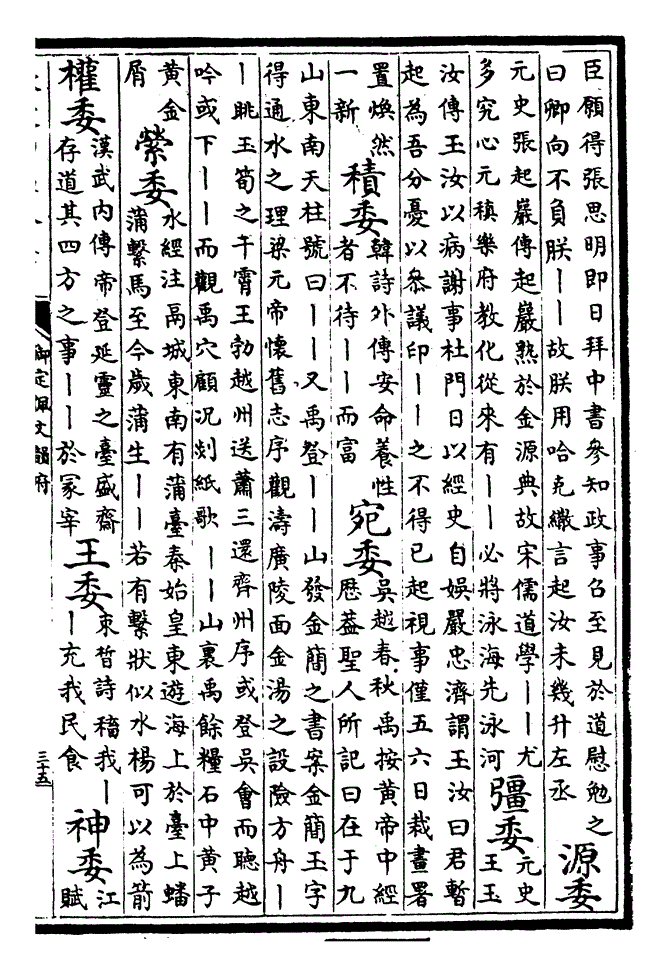 臣願得張思明即日拜中書參知政事召至見於道慰勉之
曰卿向不負朕——故朕用哈克繖言起汝未幾升左丞
源委
元史張起巖傳起巖熟於金源典故宋儒道學——尤
多究心元稹樂府教化從來有——必將泳海先泳河
彊委
元史
王玉
汝傳玉汝以病謝事杜門日以經史自娛嚴忠濟謂王汝曰君暫
起為吾分憂以叅議印——之不得已起視事僅五六日裁畫署
置煥然
一新
積委
韓詩外傳安命養性
者不待——而富
宛委
吳越春秋禹按黄帝中經
歴葢聖人所記曰在于九
山東南天柱號曰——又禹登——山發金簡之書案金簡玉字
得通水之理梁元帝懷舊志序觀濤廣陵面金湯之設險方舟—
—眺玉笥之干霄王勃越州送蕭三還齊州序或登吳會而聽越
吟或下——而觀禹穴顧况剡紙歌——山裏禹餘糧石中黄子
黄金
屑
縈委
水經注鬲城東南有蒲臺秦始皇東遊海上於臺上蟠
蒲繫馬至今歲蒲生——若有繫狀似水楊可以為箭
權委
漢武内傳帝登延靈之臺盛齋
存道其四方之事——於冢宰
王委
束晳詩穡我—
—充我民食
神委
江
賦
御定佩文韻府
三十五